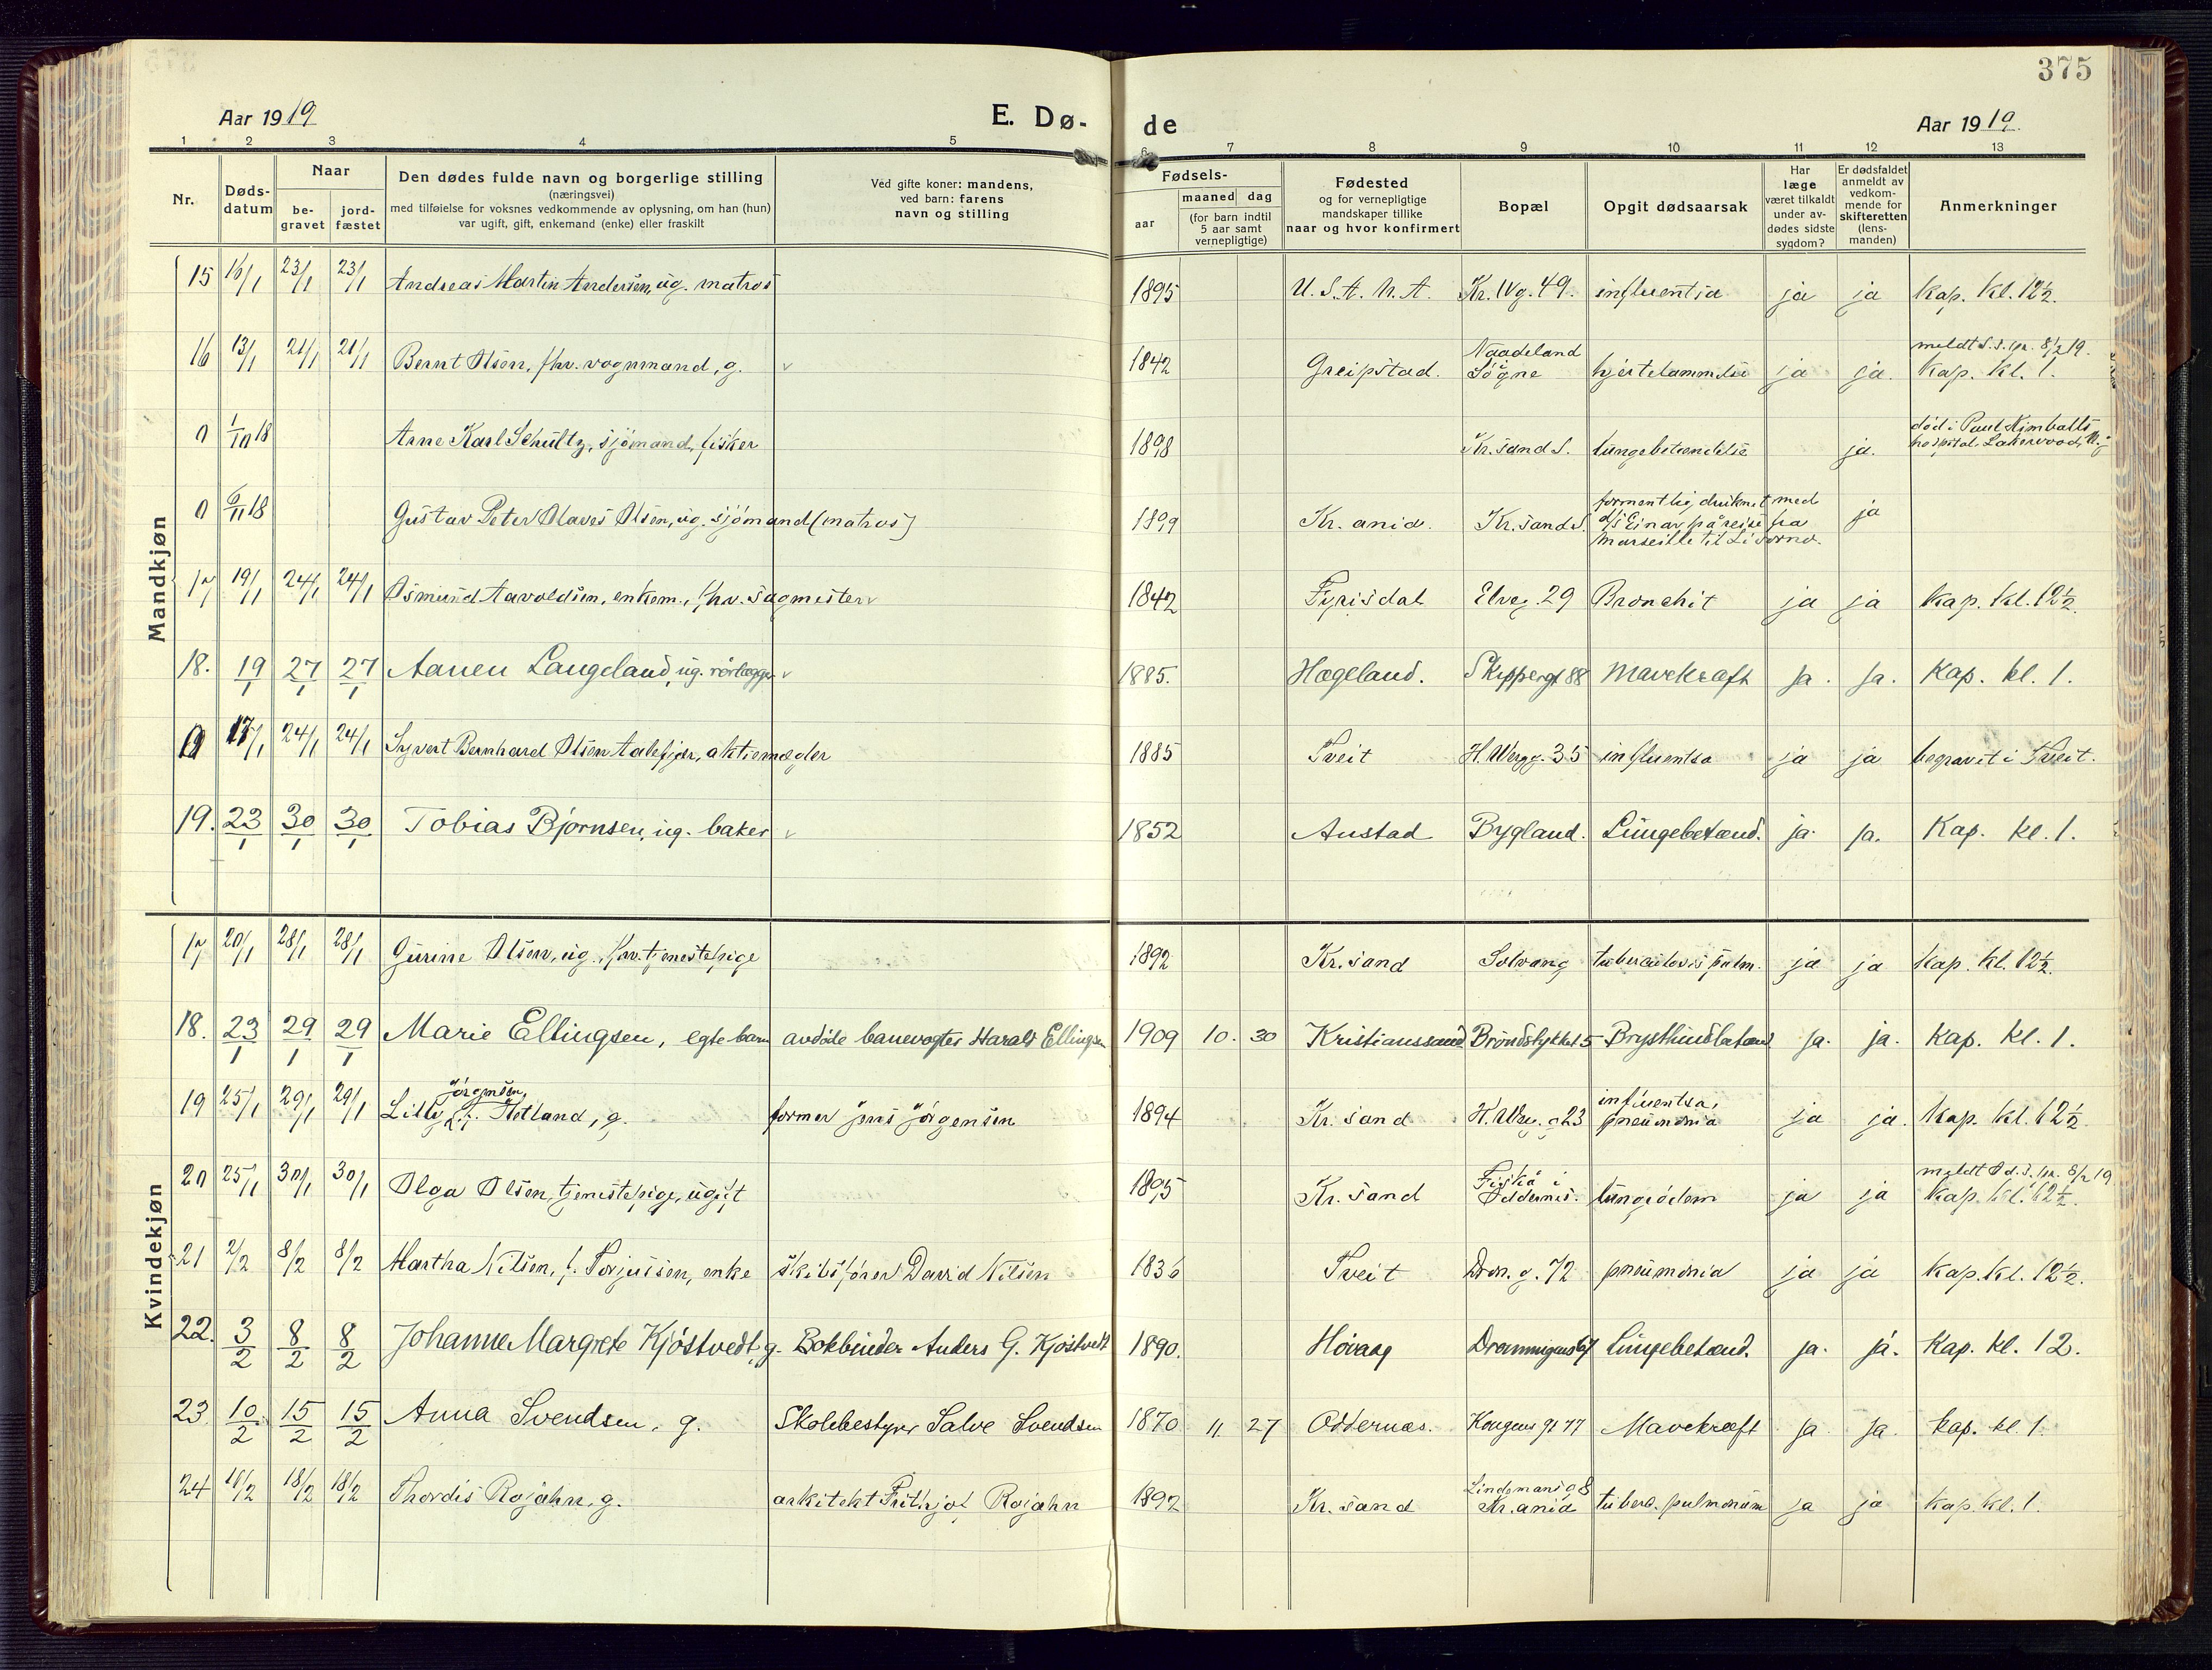 375
Aar 1919 E. Dø- de Aar 1919.
1 2 3 4 5 6 7 8 9 10 11 12 13
Nr.
Døds-
datum
Naar
be-
gravet
jord-
fæstet
Den dødes fulde navn og borgerlige stilling
(næringsvei)
med tilføielse for voksnes vedkommende av oplysning, om han (hun)
var ugift, gift, enkemand (enke) eller fraskilt
Ved gifte koner: mandens,
ved barn: farens
navn og stilling
Fødsels-
aar
maaned dag
(for barn indtil
5 aar samt
vernepligtige)
Fødested
og for vernepligtige
mandskaper tillike
naar og hvor konfirmert
Bopæl
Opgit dødsaarsak
Har
læge
været tilkaldt
under av-
dødes sidste
sygdom?
Er dødsfaldet
anmeldt av
vedkom-
mende for
skifteretten
(lens-
manden)
Anmerkninger
Mandkjøn
15 16/1 23/1 23/1 Andreas Martin Andersen, ug. matros 1895 U. S. A. N. A. Kr. IV g. 49. influentsa ja ja Kap. kl. 12½.
16 13/1 21/1 21/1 Bernt Olsen, fhv. vognmand, g. v 1842 Greipstad. Naadeland
Søgne hjertelammelse ja ja. meldt S. s. pr. 8/2 19.
Kap. kl. 1.
0 1/10 18 Arne Karl Schultz, sjømand, fisker 1898 Kr. sand S. lungebetændelse ja. død i Paul Kimballs
hospital, Lakewood, N. j.
0 6/11 18 Gustav Peter Olaves Olsen, ug. sjømand (matros) 1899 Kr. ania. Kr. sand S. formentlig druknet med
d/s Einar på reise fra
Marseille til Livorno. ja
17 19/1 24/1 24/1 Osmund Aavoldsen, enkem., fhv. sagmester v 1842 Fyrisdal Elveg. 29 Bronchit ja ja Kap. kl. 12½.
18. 19/1 27/1 27/1 Aanen Langeland, ug. rørlægger v 1885. Hægeland. Skippergt 88 Mavekræft ja. ja. Kap. kl. 1.
0 17/1 24/1 24/1 Syvert Bernhard Olsen Aalefjær, aktiemægler 1885 Tveit H. Wergg. 35 influentsa ja ja begravet i Tveit.
19. 23/1 30/1 30/1 Tobias Bjørnsen, ug. baker v 1852 Austad Bygland. Lungebetænd. ja. ja. Kap. kl. 1.
Kvindekjøn
17 20/1 28/1 28/1 Gurine Olsen, ug., fhv. tjenestepige 1892 Kr. sand Solvang tuberculosis pulm. ja ja Kap. kl. 12½.
18. 23/1 29/1 29/1 Marie Ellingsen, egte barn avdøde banevogter Harald Ellingsen 1909 10. 30 Kristianssand Brøndstykket 5 Brysthindebetænd ja. ja. Kap. kl. 1.
19 25/1 29/1 29/1 Lilly Jørgensen,
f. Hetland, g. former Jens Jørgensen 1894 Kr. sand H. Werg. g 23 influentsa,
pneumonia ja ja. Kap. kl. 12½.
20 25/1 30/1 30/1 Olga Olsen, tjenestepige, ugift 1895 Kr. sand Fiskå i
Oddernes. lungeødem ja ja meldt Od. s. pr. 8/2 19
Kap. kl. 12½.
21 2/2 8/2 8/2 Martha Nilsen, f. Torjussen, enke skibsfører David Nilsen 1836 Tveit Dron. g. 72 pneumonia ja ja Kap. kl. 12½.
22. 3/2 8/2 8/2 Johanne Margrete Kjøstvedt, g. Bokbinder Anders G. Kjøstvedt 1890. Høvaag Dronningensgt Lungebetænd. ja. ja. Kap. kl. 12.
23 10/2 15/2 15/2 Anna Svendsen, g. Skolebestyrer Salve Svendsen 1870 11 27 Oddernæs. Kongens gt 77 Mavekræft ja ja. Kap. kl. 1.
24 11/2 18/2 18/2 Thordis Rojahn, g. arkitekt Frithjof Rojahn 1892 Kr. sand Lindemans g 8
Kr. ania tuberc. pulmonum ja ja Kap. kl. 1.